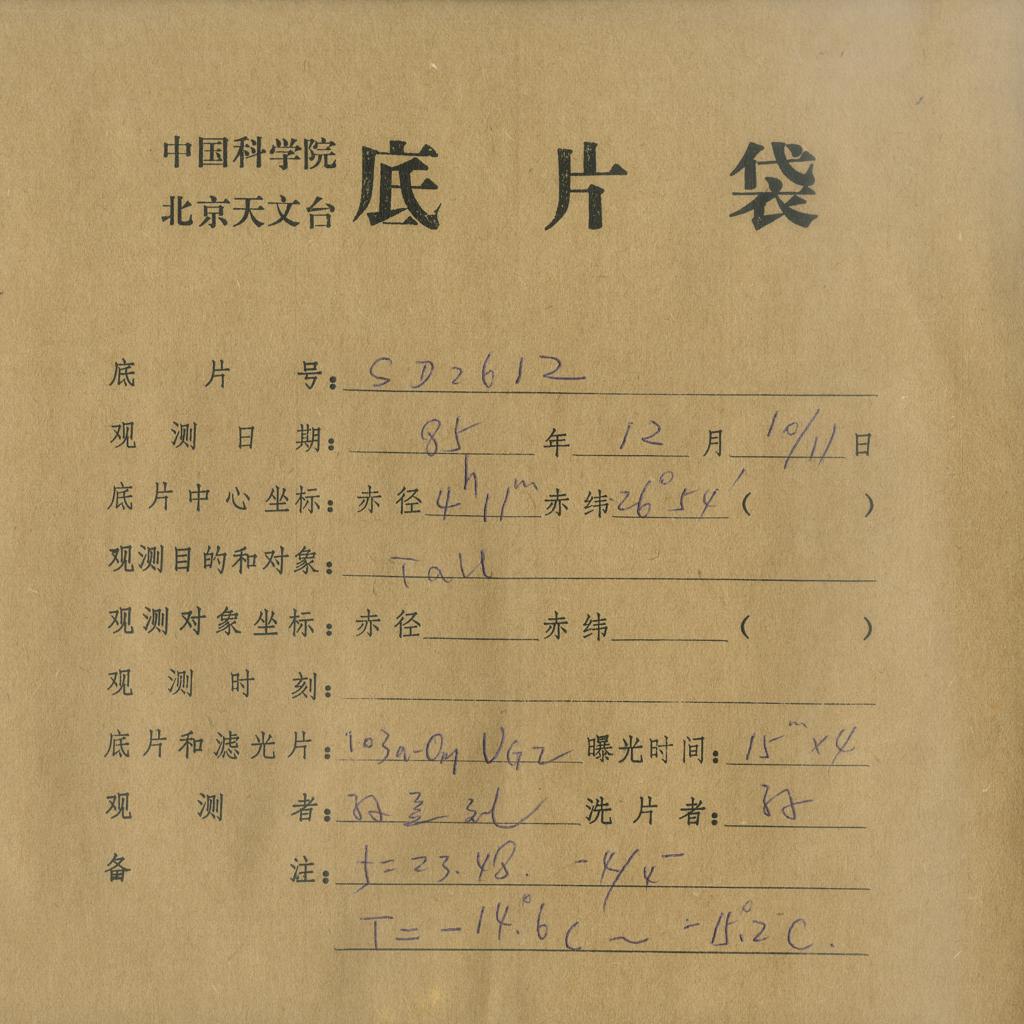 中国科学院
北京天文台 底片袋
底片号: SD2612
观测日期: 85年12月10/11日
底片中心坐标: 赤径4h11m赤纬26°54′( )
观测目的和对象: Tau
观测对象坐标: 赤径 赤纬 ( )
观测时刻:
底片和滤光片: 103a-O UG2 曝光时间: 15m×4
观测者: 孙 洗片者: 孙
备注: f=23.48. -4/4-
T=-14°.6C~-15°.2C.